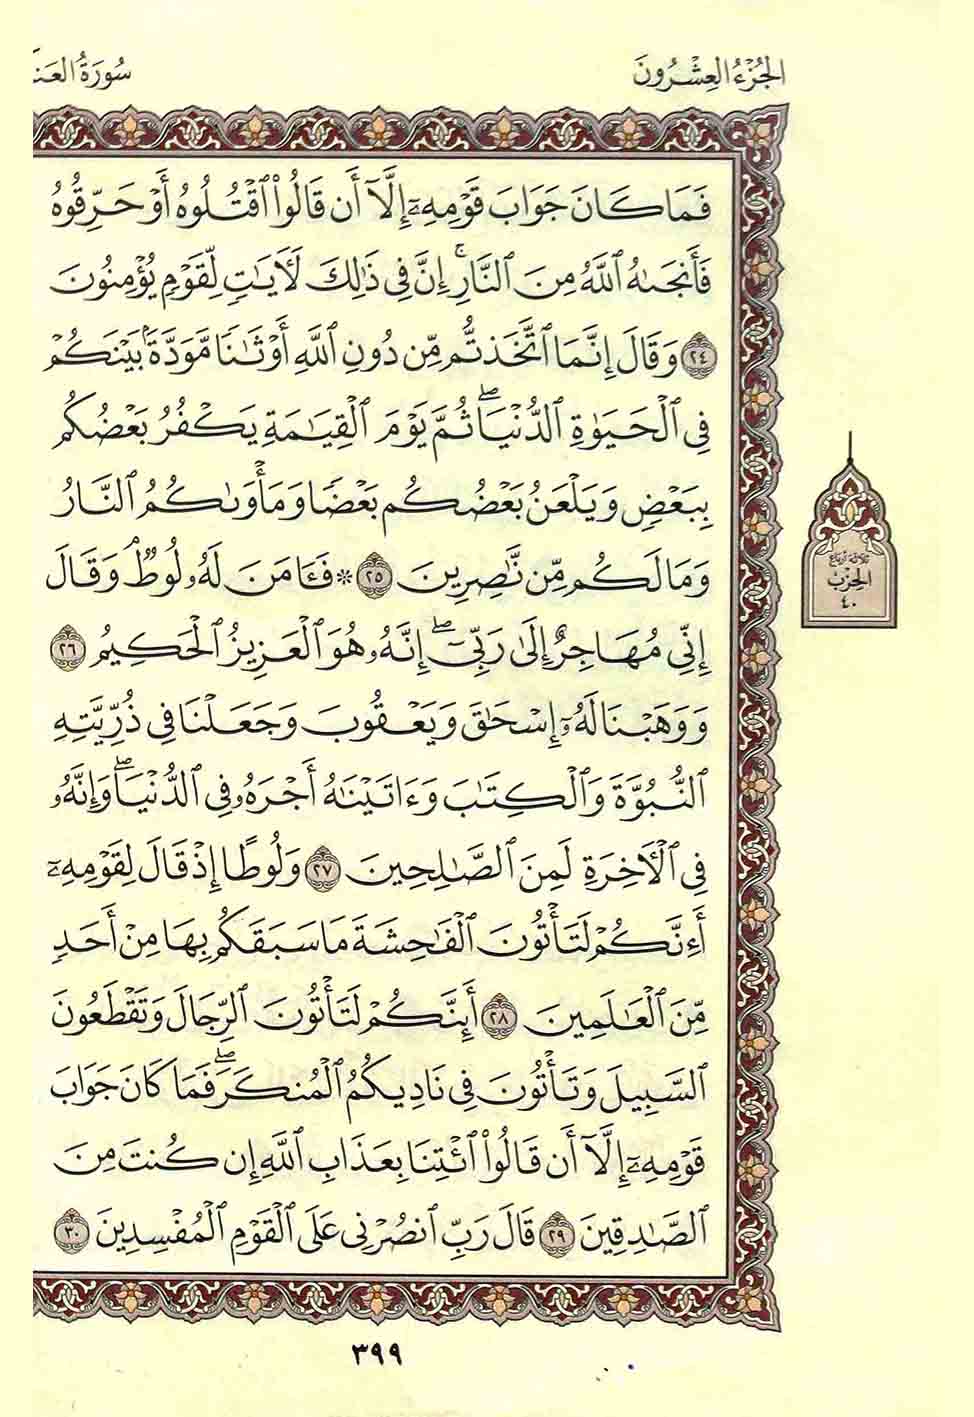 الجُزْءُ العِشْرُونَ
سُورَةُ العَن
فَمَا كَانَ جَوَابَ قَوْمِهِۦٓ إِلَّآ أَن قَالُواْ ٱقْتُلُوهُ أَوْ حَرِّقُوهُ
فَأَنجَىٰهُ ٱللَّهُ مِنَ ٱلنَّارِۚ إِنَّ فِى ذَٰلِكَ لَأٓيَٰتٍ لِّقَوْمٍ يُؤْمِنُونَ
٢٤ وَقَالَ إِنَّمَا ٱتَّخَذْتُم مِّن دُونِ ٱللَّهِ أَوْثَٰنًا مَّوَدَّةَ بَيْنِكُمْ
فِى ٱلْحَيَوٰةِ ٱلدُّنْيَاۖ ثُمَّ يَوْمَ ٱلْقِيَٰمَةِ يَكْفُرُ بَعْضُكُم
بِبَعْضٍ وَيَلْعَنُ بَعْضُكُم بَعْضًا وَمَأْوَىٰكُمُ ٱلنَّارُ
وَمَا لَكُم مِّن نَّٰصِرِينَ ٢٥ * فَـَٔامَنَ لَهُۥ لُوطٌۘ وَقَالَ
إِنِّى مُهَاجِرٌ إِلَىٰ رَبِّىٓۖ إِنَّهُۥ هُوَ ٱلْعَزِيزُ ٱلْحَكِيمُ ٢٦
وَوَهَبْنَا لَهُۥٓ إِسْحَٰقَ وَيَعْقُوبَ وَجَعَلْنَا فِى ذُرِّيَّتِهِ
ٱلنُّبُوَّةَ وَٱلْكِتَٰبَ وَءَاتَيْنَٰهُ أَجْرَهُۥ فِى ٱلدُّنْيَاۖ وَإِنَّهُۥ
فِى ٱلْأَخِرَةِ لَمِنَ ٱلصَّٰلِحِينَ ٢٧ وَلُوطًا إِذْ قَالَ لِقَوْمِهِۦٓ
أَءِنَّكُمْ لَتَأْتُونَ ٱلْفَٰحِشَةَ مَا سَبَقَكُم بِهَا مِنْ أَحَدٍ
مِّنَ ٱلْعَٰلَمِينَ ٢٨ أَئِنَّكُمْ لَتَأْتُونَ ٱلرِّجَالَ وَتَقْطَعُونَ
ٱلسَّبِيلَ وَتَأْتُونَ فِى نَادِيكُمُ ٱلْمُنكَرَۖ فَمَا كَانَ جَوَابَ
قَوْمِهِۦٓ إِلَّآ أَن قَالُواْ ٱئْتِنَا بِعَذَابِ ٱللَّهِ إِن كُنتَ مِنَ
ٱلصَّٰدِقِينَ ٢٩ قَالَ رَبِّ ٱنصُرْنِى عَلَى ٱلْقَوْمِ ٱلْمُفْسِدِينَ ٣٠
ثلاثة أرباع
الحِزْب
٤٠
٣٩٩